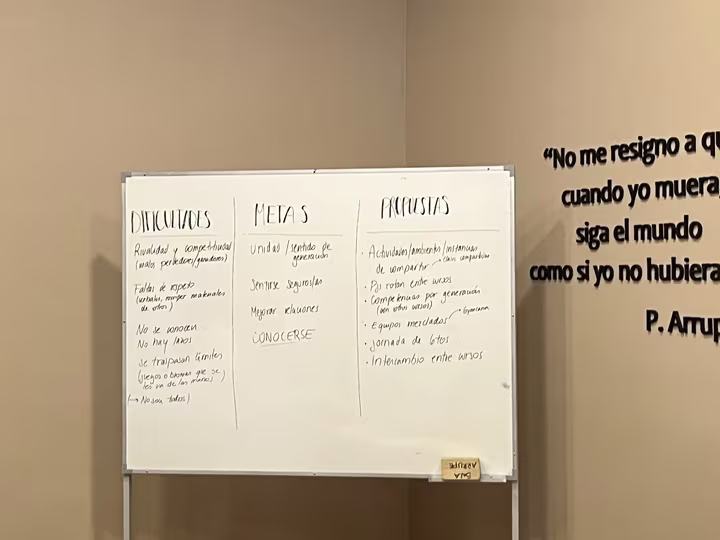 DIFICULTADES
Rivalidad y competitividad
(malos perdedores/ganadores)
Faltas de respeto
(verbales, romper materiales
de otros)
No se conocen
No hay lazos
Se traspasan límites
(juegos o bromas que se
les va de las manos)
No son todos)
METAS
Unidad / sentido de
generación
Sentirse seguros/as
Mejorar relaciones
CONOCERSE
PROPUESTAS
· Actividades/ambientes/instancias
de compartir
compartidas
· PJs rotan entre cursos
· Competencias por generación
(con otros cursos)
· Equipos mezclados
· Jornada de 6tos
· Intercambio entre cursos
SALA
ARRUPE
“No me resigno a qu
cuando yo muera,
siga el mundo
como si yo no hubiera
P. Arrup